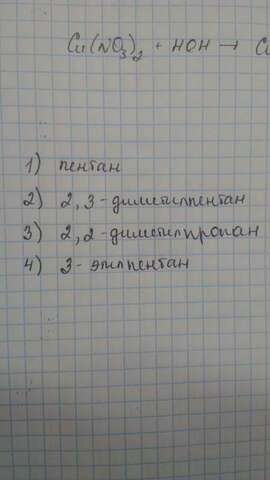 Cu(NO3)2 + HOH → C
1) пентан
2) 2,3-диметилпентан
3) 2,2-диметилпропан
4) 3-этилпентан